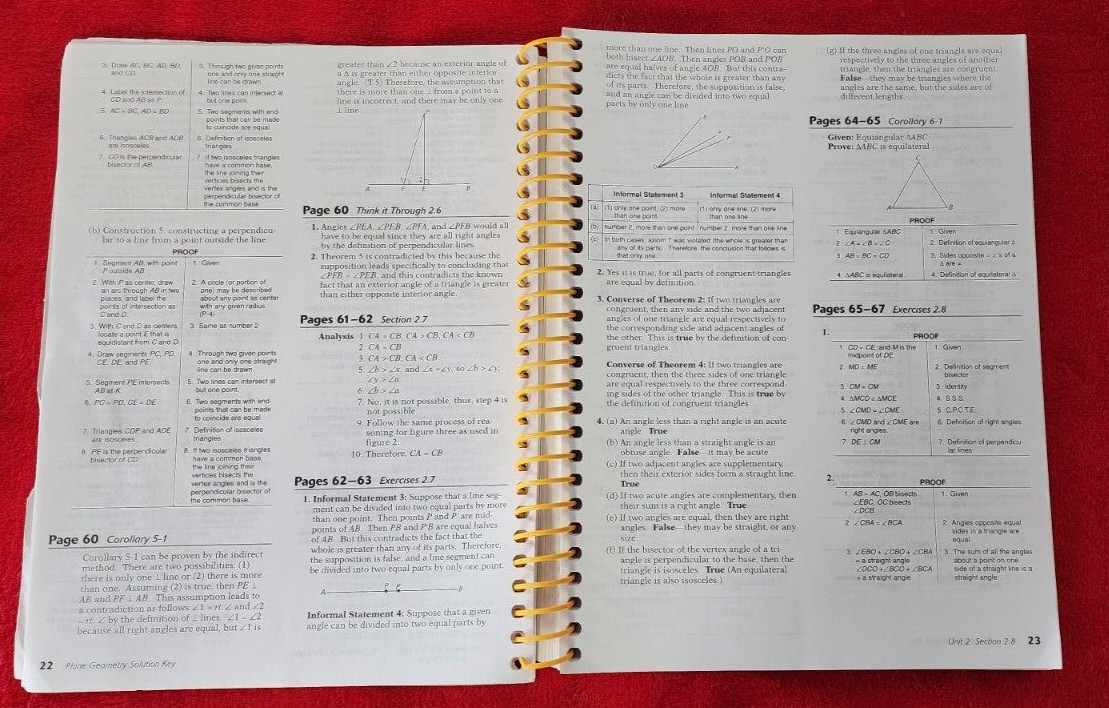 3. Draw AC, BC, AD, BD, and CD.
3. Through two given points one and only one straight line can be drawn.
4. Label the intersection of CD and AB as P.
4. Two lines can intersect at but one point.
5. AC = BC, AD = BD
5. Two segments with end-points that can be made to coincide are equal.
6. Triangles ACB and ADB are isosceles.
6. Definition of isosceles triangles
7. CD is the perpendicular bisector of AB.
7. If two isosceles triangles have a common base, the line joining their vertices bisects the vertex angles and is the perpendicular bisector of the common base.
(b) Construction 5: constructing a perpendicu-
lar to a line from a point outside the line
PROOF
1. Segment AB, with point P outside AB
1. Given
2. With P as center, draw an arc through AB in two places, and label the points of intersection as C and D.
2. A circle (or portion of one) may be described about any point as center with any given radius. (P-4)
3. With C and D as centers, locate a point E that is equidistant from C and D.
3. Same as number 2
4. Draw segments PC, PD, CE, DE, and PE.
4. Through two given points one and only one straight line can be drawn.
5. Segment PE intersects AB at K.
5. Two lines can intersect at but one point.
6. PC = PD, CE = DE
6. Two segments with end-points that can be made to coincide are equal.
7. Triangles CDP and ADE are isosceles.
7. Definition of isosceles triangles
8. PE is the perpendicular bisector of CD.
8. If two isosceles triangles have a common base, the line joining their vertices bisects the vertex angles and is the perpendicular bisector of the common base.
Page 60 Corollary 5-1
Corollary 5-1 can be proven by the indirect
method. There are two possibilities: (1)
there is only one ⊥ line or (2) there is more
than one. Assuming (2) is true, then PE ⊥
AB and PF ⊥ AB. This assumption leads to
a contradiction as follows: ∠1 = rt. ∠ and ∠2
= rt. ∠ by the definition of ⊥ lines. ∠1 = ∠2
because all right angles are equal, but ∠1 is
22 Plane Geometry Solution Key
greater than ∠2 because an exterior angle of
a Δ is greater than either opposite interior
angle. (T.5) Therefore, the assumption that
there is more than one ⊥ from a point to a
line is incorrect, and there may be only one
⊥ line.
1 2
A F E B
Page 60 Think it Through 2.6
1. Angles ∠PEA, ∠PEB, ∠PFA, and ∠PFB would all
have to be equal since they are all right angles
by the definition of perpendicular lines.
2. Theorem 5 is contradicted by this because the
supposition leads specifically to concluding that
∠PFB = ∠PEB, and this contradicts the known
fact that an exterior angle of a triangle is greater
than either opposite interior angle.
Pages 61–62 Section 2.7
Analysis 1. CA = CB, CA > CB, CA < CB
2. CA = CB
3. CA > CB, CA < CB
5. ∠b > ∠x, and ∠x = ∠y, so ∠b > ∠y;
∠y > ∠a
6. ∠b > ∠a
7. No, it is not possible; thus, step 4 is
not possible.
9. Follow the same process of rea-
soning for figure three as used in
figure 2.
10. Therefore, CA = CB
Pages 62–63 Exercises 2.7
1. Informal Statement 3: Suppose that a line seg-
ment can be divided into two equal parts by more
than one point. Then points P and P' are mid-
points of AB. Then PB and P'B are equal halves
of AB. But this contradicts the fact that the
whole is greater than any of its parts. Therefore,
the supposition is false, and a line segment can
be divided into two equal parts by only one point.
A P P' B
Informal Statement 4: Suppose that a given
angle can be divided into two equal parts by
more than one line. Then lines PO and P'O can
both bisect ∠AOB. Then angles POB and P'OB
are equal halves of angle AOB. But this contra-
dicts the fact that the whole is greater than any
of its parts. Therefore, the supposition is false,
and an angle can be divided into two equal
parts by only one line.
O A
Informal Statement 3 Informal Statement 4
(a) (1) only one point; (2) more than one point (1) only one line; (2) more than one line
(b) number 2, more than one point number 2, more than one line
(c) In both cases, axiom 7 was violated: the whole is greater than any of its parts. Therefore, the conclusion that follows is that only one.
2. Yes it is true, for all parts of congruent triangles
are equal by definition.
3. Converse of Theorem 2: If two triangles are
congruent, then any side and the two adjacent
angles of one triangle are equal respectively to
the corresponding side and adjacent angles of
the other. This is true by the definition of con-
gruent triangles.
Converse of Theorem 4: If two triangles are
congruent, then the three sides of one triangle
are equal respectively to the three correspond-
ing sides of the other triangle. This is true by
the definition of congruent triangles.
4. (a) An angle less than a right angle is an acute
angle. True
(b) An angle less than a straight angle is an
obtuse angle. False—it may be acute
(c) If two adjacent angles are supplementary,
then their exterior sides form a straight line.
True
(d) If two acute angles are complementary, then
their sum is a right angle. True
(e) If two angles are equal, then they are right
angles. False—they may be straight, or any
size.
(f) If the bisector of the vertex angle of a tri-
angle is perpendicular to the base, then the
triangle is isosceles. True (An equilateral
triangle is also isosceles.)
(g) If the three angles of one triangle are equal
respectively to the three angles of another
triangle, then the triangles are congruent.
False—they may be triangles where the
angles are the same, but the sides are of
different lengths.
Pages 64–65 Corollary 6-1
Given: Equiangular ΔABC
Prove: ΔABC is equilateral.
C
A B
PROOF
1. Equiangular ΔABC
1. Given
2. ∠A = ∠B = ∠C
2. Definition of equiangular Δ
3. AB = BC = CD
3. Sides opposite = ∠'s of a Δ are =.
4. ΔABC is equilateral.
4. Definition of equilateral Δ
Pages 65–67 Exercises 2.8
1.
PROOF
1. CD = CE, and M is the midpoint of DE.
1. Given
2. MD = ME
2. Definition of segment bisector
3. CM = CM
3. Identity
4. ΔMCD ≅ ΔMCE
4. S.S.S.
5. ∠CMD = ∠CME
5. C.P.C.T.E.
6. ∠CMD and ∠CME are right angles.
6. Definition of right angles
7. DE ⊥ CM
7. Definition of perpendicu-lar lines
2.
PROOF
1. AB = AC, OB bisects ∠EBC, OC bisects ∠DCB.
1. Given
2. ∠CBA = ∠BCA
2. Angles opposite equal sides in a triangle are equal.
3. ∠EBO + ∠CBO + ∠CBA = a straight angle ∠DCO + ∠BCO + ∠BCA = a straight angle
3. The sum of all the angles about a point on one side of a straight line is a straight angle.
Unit 2, Section 2.8 23